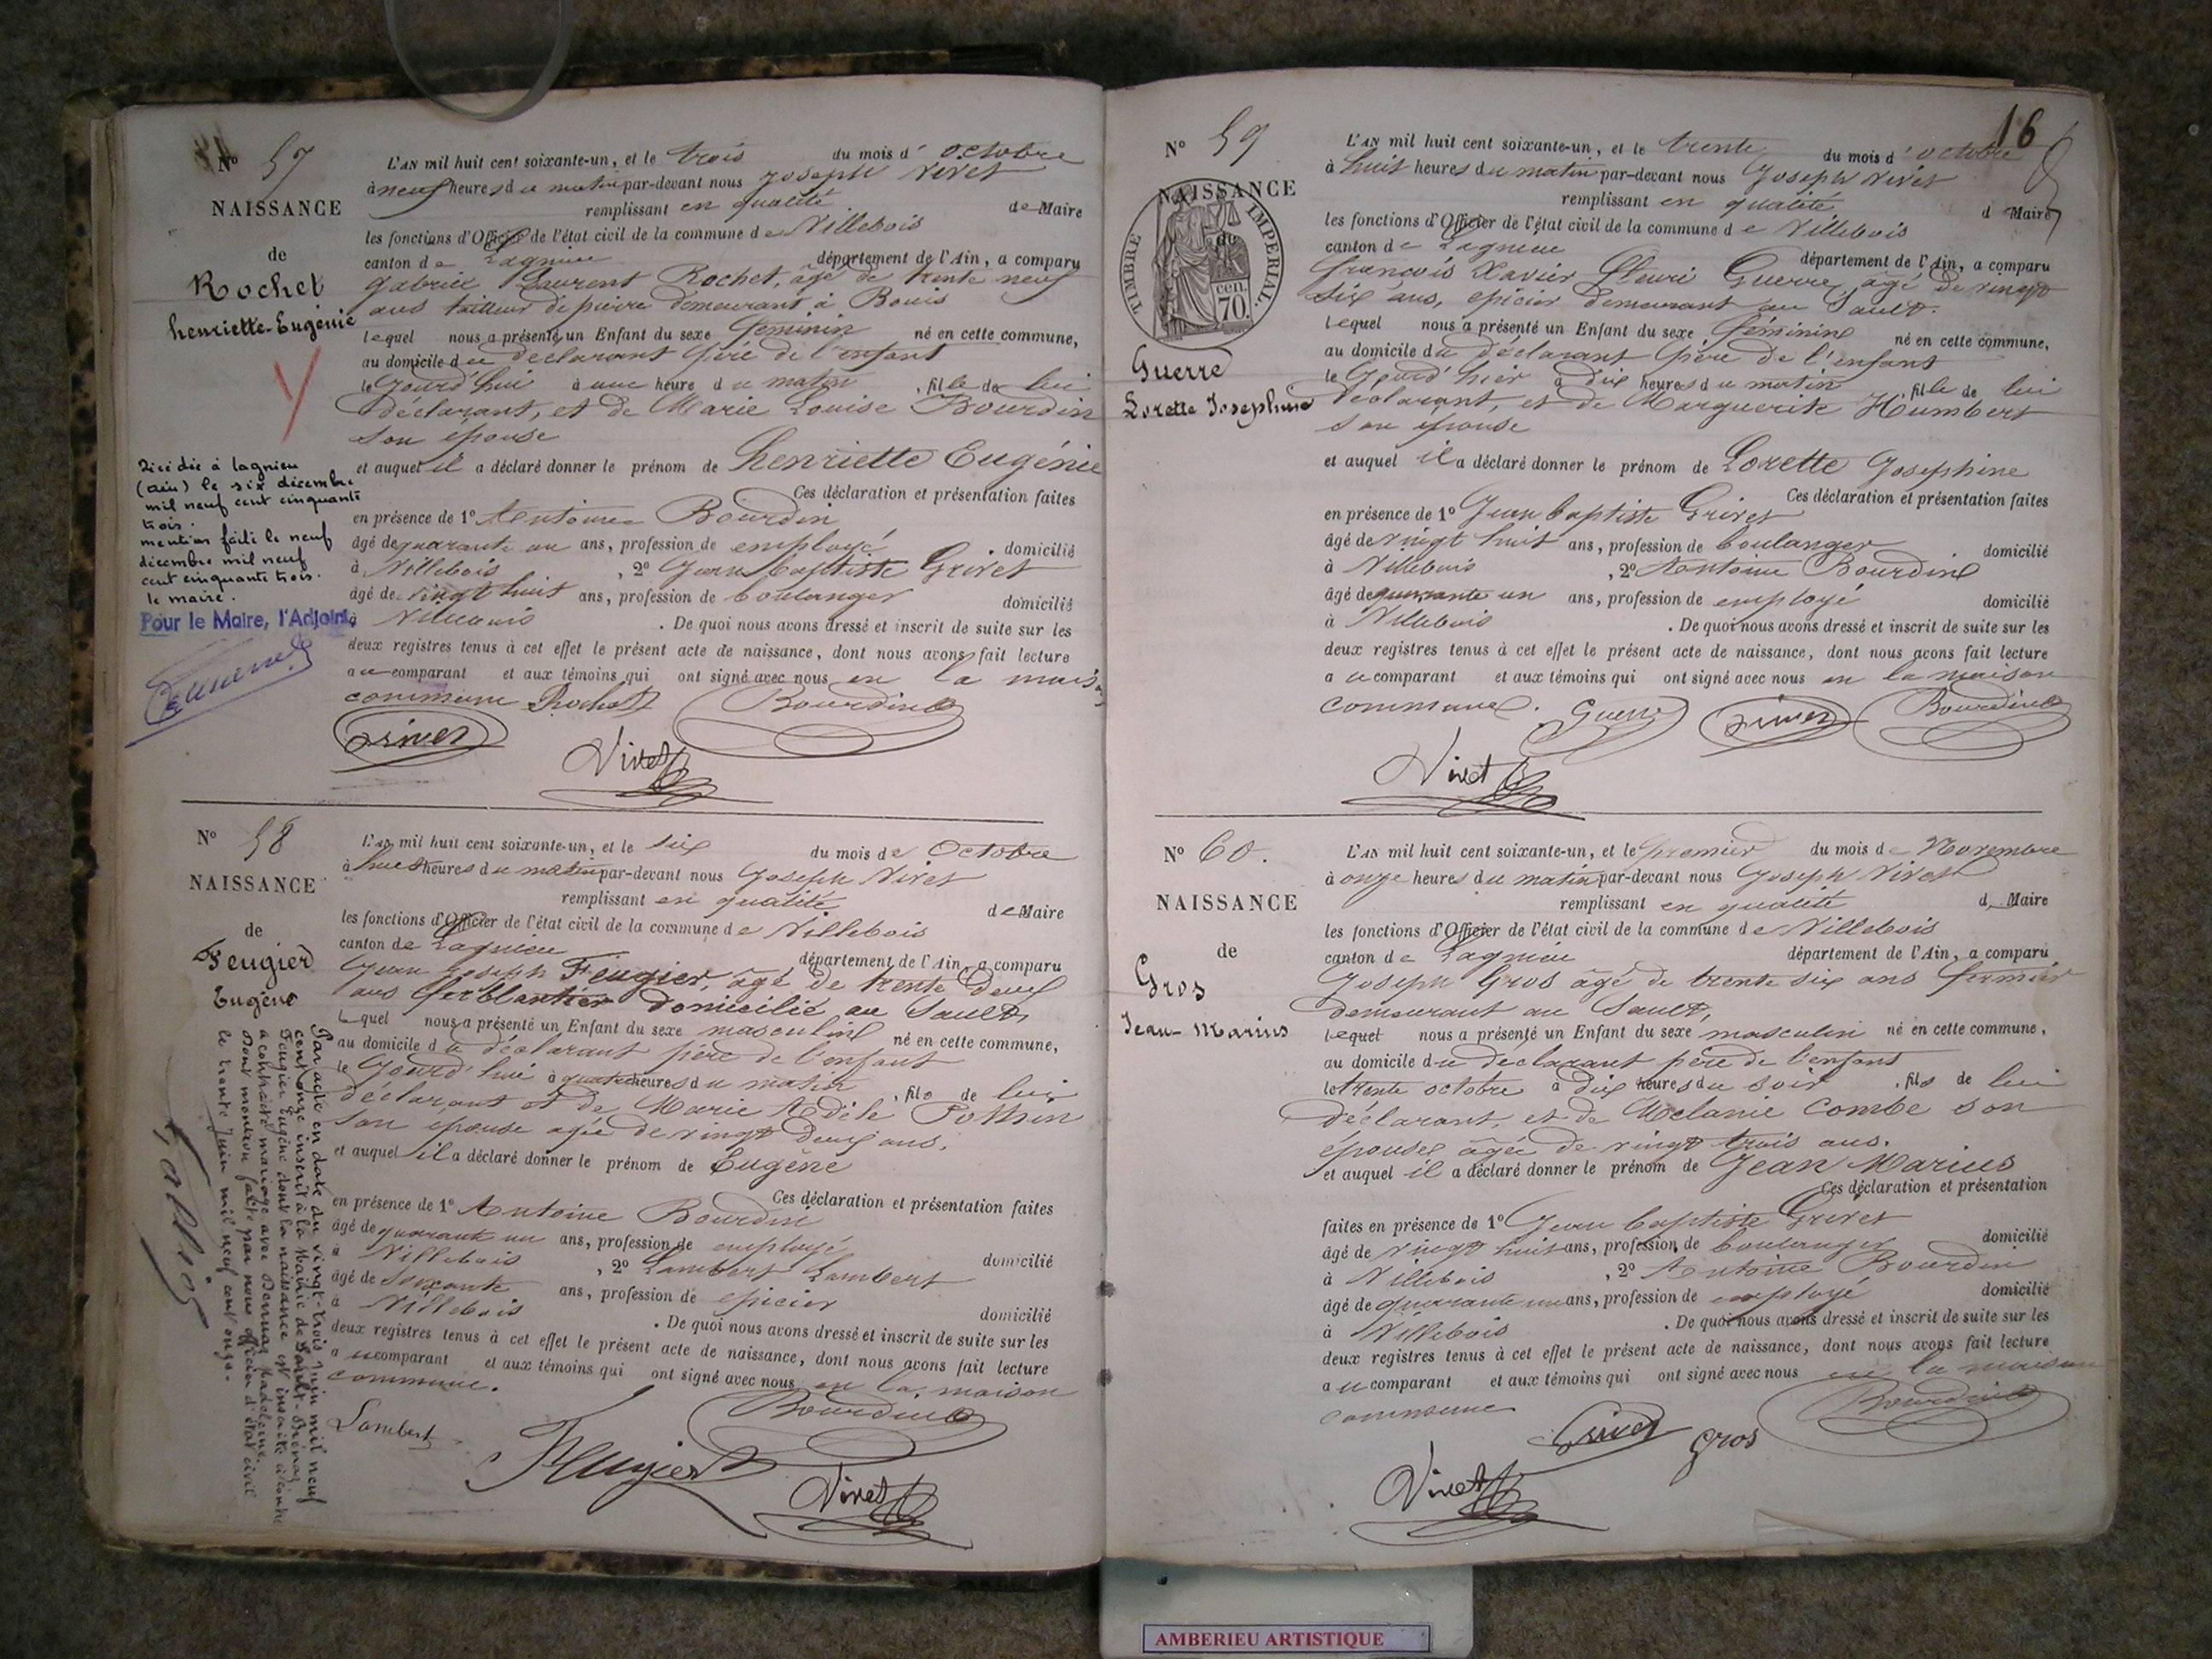 Nº 57
NAISSANCE
de
Rochet
henriette-Eugénie
Décédée à lagnieu
(ain) le six décembre
mil neuf cent cinquante
trois.
mention faite le neuf
décembre mil neuf
cent cinquante trois.
le maire.
Pour le Maire, l'Adjoint
L'AN mil huit cent soixante-un, et le trois du mois d'octobre
à neuf heures du matin par-devant nous Joseph Vivet
remplissant en qualité de Maire
les fonctions d'Officier de l'état civil de la commune de Villebois
canton de Lagnieu département de l'Ain, a comparu
gabriel Laurent Rochet, âgé de trente neuf
ans tailleur de pierre demeurant à Bouis
Lequel nous a présenté un Enfant du sexe féminin né en cette commune,
au domicile du déclarant père de l'enfant
le Jourd'hui à une heure du matin, fille de lui
déclarant, et de Marie Louise Bourdin
son épouse
et auquel il a déclaré donner le prénom de henriette Eugénie
Ces déclaration et présentation faites
en présence de 1º Antoine Bourdin
âgé de quarante un ans, profession de employé domicilié
à Villebois, 2º Jean baptiste Grivet
âgé de vingt huit ans, profession de boulanger domicilié
à Villebois. De quoi nous avons dressé et inscrit de suite sur les
deux registres tenus à cet effet le présent acte de naissance, dont nous avons fait lecture
au comparant et aux témoins qui ont signé avec nous en la maison
commune Rochet Bourdin
Grivet
Vivet
Nº 58
NAISSANCE
de
Feugier
Eugène
Par acte en date du vingt-trois Juin mil neuf
cent onze inscrit à la Mairie de Sault-Brénaz
Feugier Eugène dont la naissance est inscrite ci-contre
a contracté mariage avec Madeleine.
Dont mention faite par nous officier d'état civil
le trente Juin mil neuf cent onze.
L'AN mil huit cent soixante-un, et le six du mois de Octobre
à huit heures du matin par-devant nous Joseph Vivet
remplissant en qualité de Maire
les fonctions d'Officier de l'état civil de la commune de Villebois
canton de Lagnieu département de l'Ain, a comparu
Jean Joseph Feugier, âgé de trente deux
ans ferblantier domicilié au Sault,
Lequel nous a présenté un Enfant du sexe masculin né en cette commune,
au domicile du déclarant père de l'enfant
le Jourd'hui à quatre heures du matin, fils de lui
déclarant et de Marie Adèle Pothin
son épouse agée de vingt deux ans.
et auquel il a déclaré donner le prénom de Eugène
Ces déclaration et présentation faites
en présence de 1º Antoine Bourdin
âgé de quarante un ans, profession de employé domicilié
à Villebois, 2º Lambert Lambert
âgé de soixante ans, profession de épicier domicilié
à Villebois. De quoi nous avons dressé et inscrit de suite sur les
deux registres tenus à cet effet le présent acte de naissance, dont nous avons fait lecture
au comparant et aux témoins qui ont signé avec nous en la maison
commune.
Lambert Feugier Bourdin
Vivet
16
Nº 59
NAISSANCE
de
TIMBRE IMPERIAL.
70 cen.
Guerre
Lorette Josephine
L'AN mil huit cent soixante-un, et le trente du mois d'octobre
à huit heures du matin par-devant nous Joseph Vivet
remplissant en qualité d Maire
les fonctions d'Officier de l'état civil de la commune de Villebois
canton de Lagnieu département de l'Ain, a comparu
françois Xavier fleuri Guerre, âgé de vingt
six ans, épicier demeurant au Sault.
Lequel nous a présenté un Enfant du sexe féminin né en cette commune,
au domicile du déclarant père de l'enfant
le Jourd'hier à dix heures du matin fille de lui
déclarant, et de Marguerite Humbert
son épouse
et auquel il a déclaré donner le prénom de Lorette Josephine
Ces déclaration et présentation faites
en présence de 1º Jean baptiste Grivet
âgé de vingt huit ans, profession de boulanger domicilié
à Villebois, 2º Antoine Bourdin
âgé de quarante un ans, profession de employé domicilié
à Villebois. De quoi nous avons dressé et inscrit de suite sur les
deux registres tenus à cet effet le présent acte de naissance, dont nous avons fait lecture
au comparant et aux témoins qui ont signé avec nous en la maison
commune. Guerre Grivet Bourdin
Vivet
Nº 60.
NAISSANCE
de
Gros
Jean-Marius
L'AN mil huit cent soixante-un, et le premier du mois de Novembre
à onze heures du matin par-devant nous Joseph Vivet
remplissant en qualité d Maire
les fonctions d'Officier de l'état civil de la commune de Villebois
canton de Lagnieu département de l'Ain, a comparu
Joseph Gros âgé de trente six ans fermier
demeurant au Sault,
Lequel nous a présenté un Enfant du sexe masculin né en cette commune,
au domicile du declarant père de l'enfant
le trente octobre à dix heures du soir, fils de lui
déclarant, et de Mélanie Combe son
épouse âgée de vingt trois ans.
et auquel il a déclaré donner le prénom de Jean Marius
Ces déclaration et présentation
faites en présence de 1º Jean baptiste Grivet
âgé de vingt huit ans, profession de boulanger domicilié
à Villebois, 2º Antoine Bourdin
âgé de quarante un ans, profession de employé domicilié
à Villebois. De quoi nous avons dressé et inscrit de suite sur les
deux registres tenus à cet effet le présent acte de naissance, dont nous avons fait lecture
au comparant et aux témoins qui ont signé avec nous en la maison
commune Bourdin
Grivet Gros
Vivet
AMBERIEU ARTISTIQUE